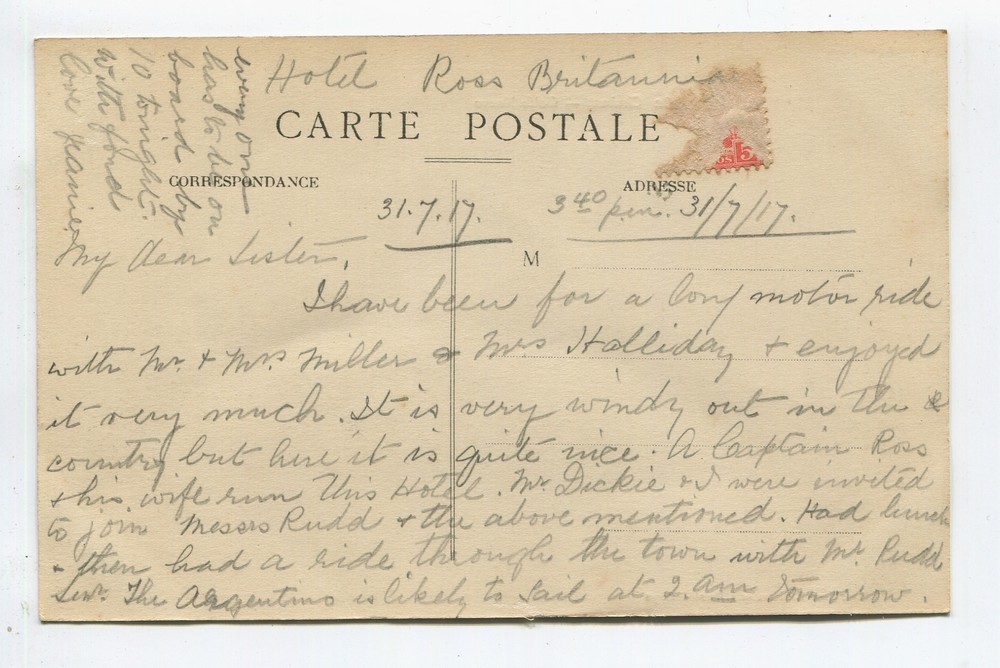 Hotel Ross Britannia
CARTE POSTALE
CORRESPONDANCE
ADRESSE
31.7.17.
3 40 p.m. 31/7/17.
M
My dear Sister,
I have been for a long motor ride
with Mr. & Mrs Miller & Mrs Halliday & enjoyed
it very much. It is very windy out in the
country but here it is quite nice. A Captain Ross
& his wife run this Hotel. Mr Dickie & I were invited
to join Messrs Rudd & the above mentioned. Had lunch
& then had a ride through the town with Mr. Rudd
Senr. The Argentino is likely to sail at 2. am tomorrow.
every one
has to be on
board by
10 tonight.
with fond
love Jeanie.
5